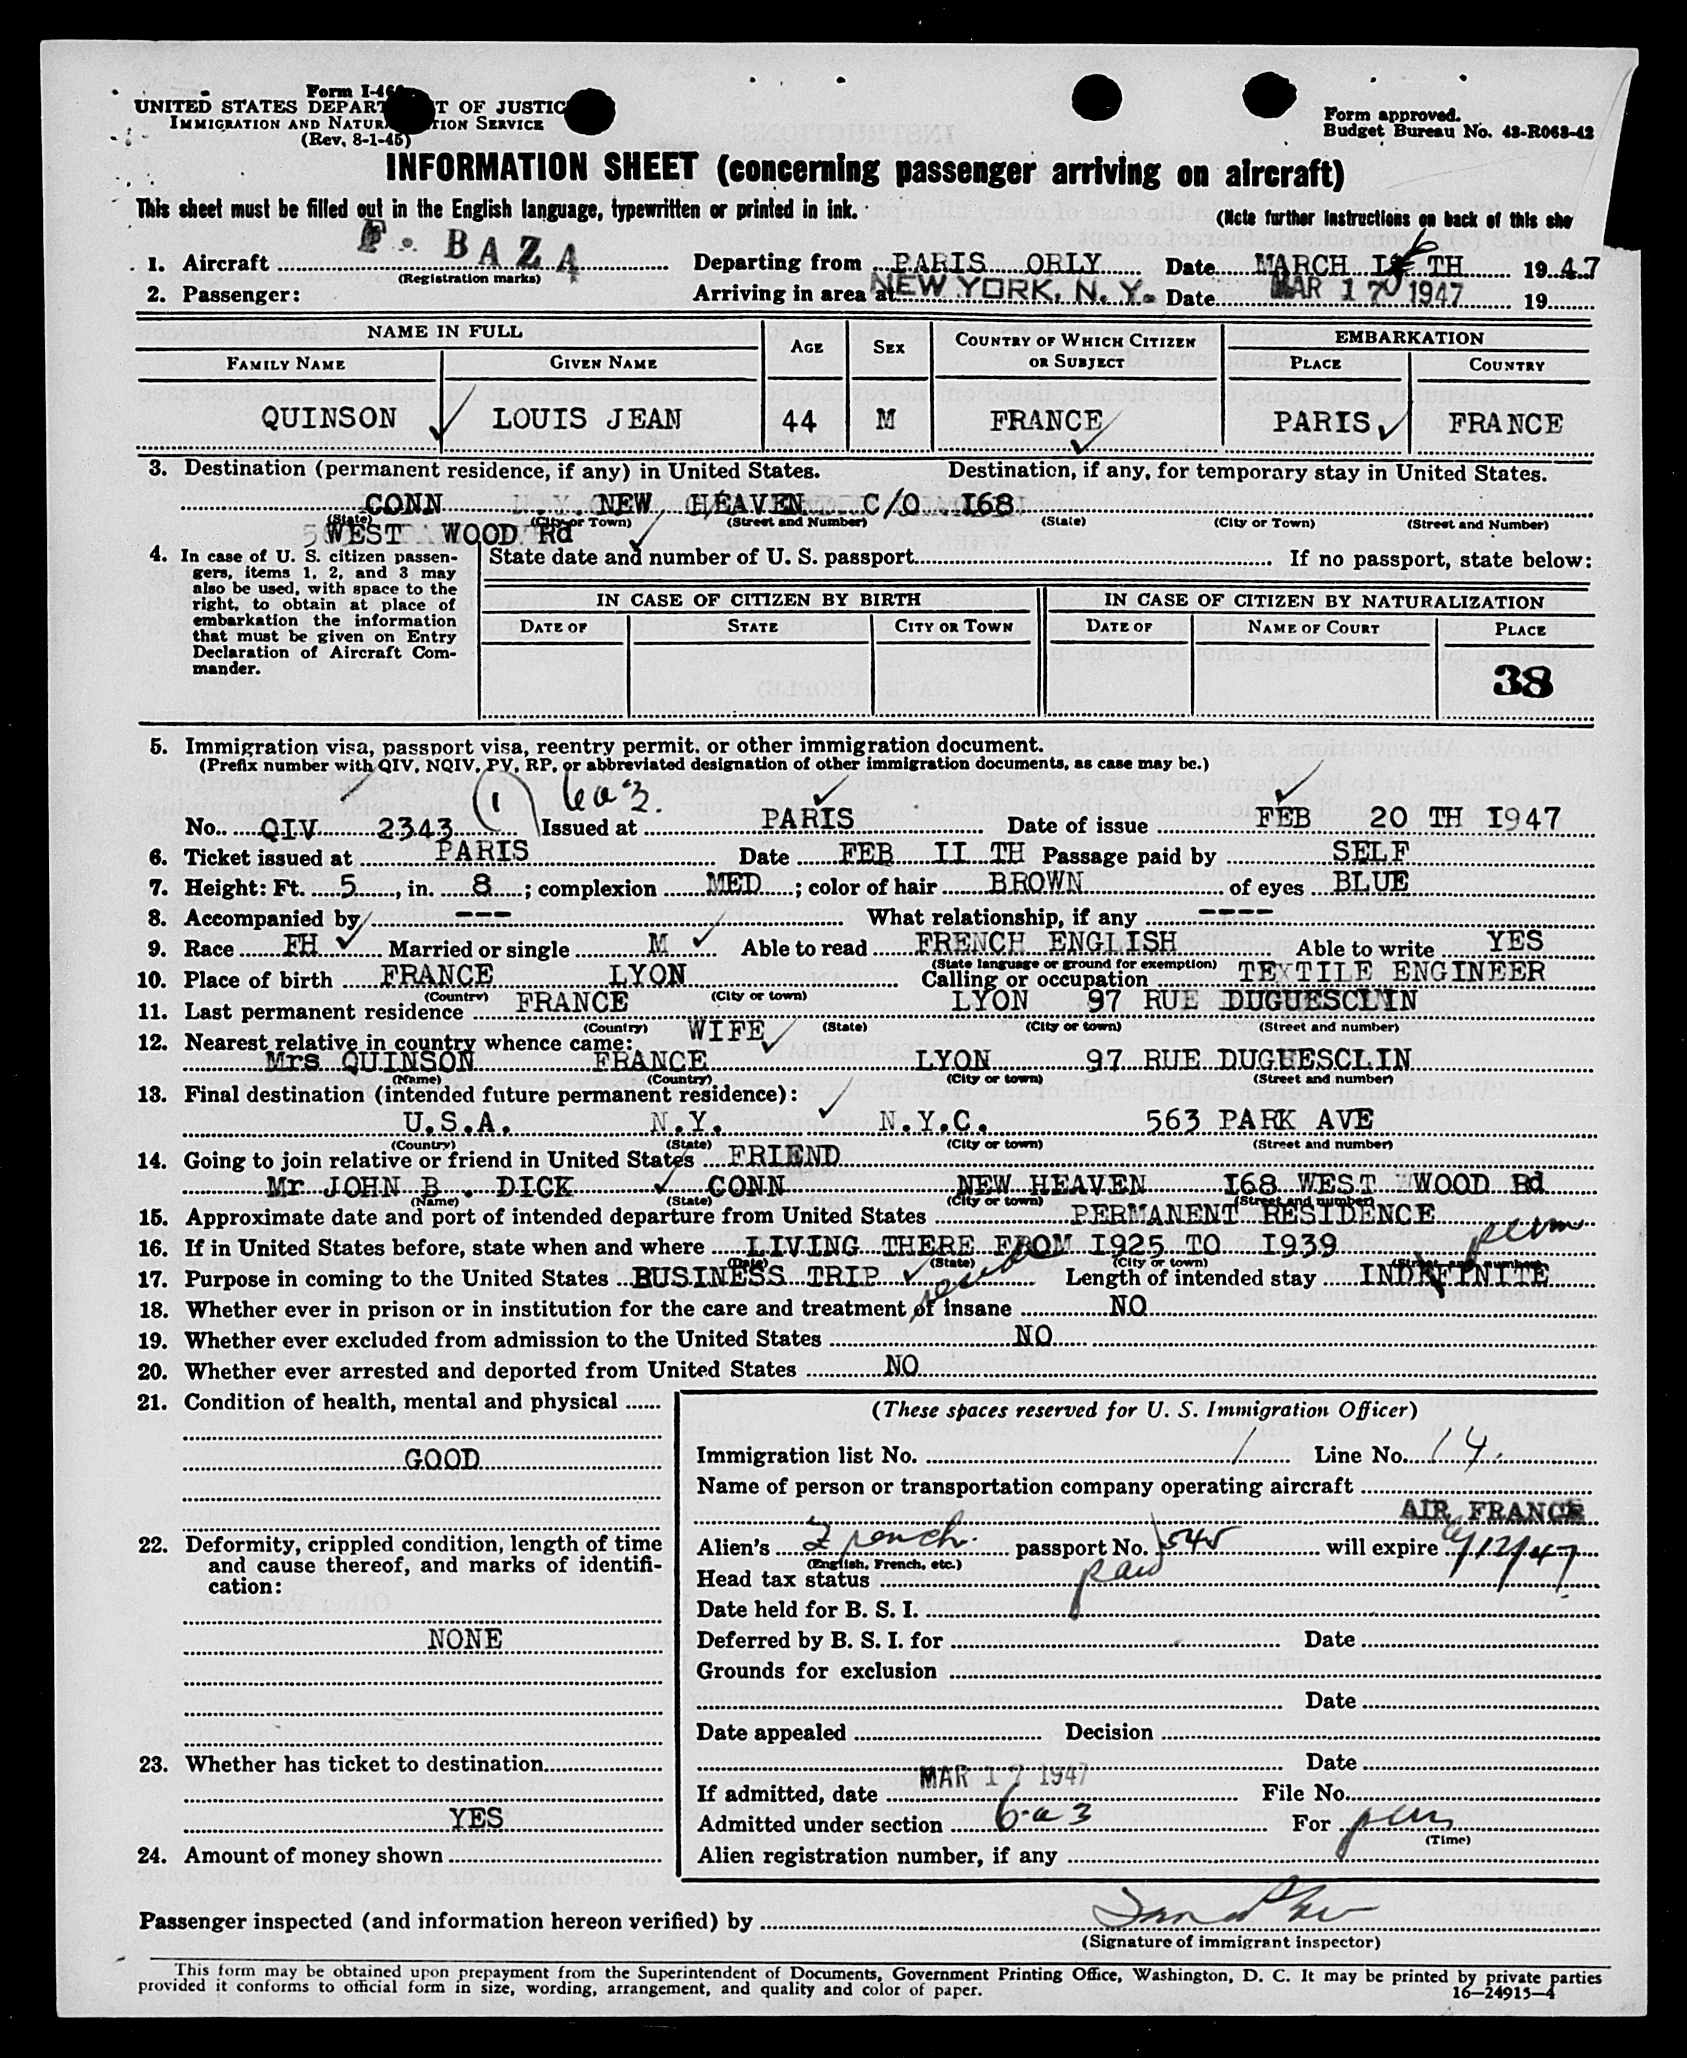 Form I-466
UNITED STATES DEPARTMENT OF JUSTICE
IMMIGRATION AND NATURALIZATION SERVICE
(Rev. 8-1-45)
Form approved.
Budget Bureau No. 43-R063-42
INFORMATION SHEET (concerning passenger arriving on aircraft)
This sheet must be filled out in the English language, typewritten or printed in ink.
(Note further instructions on back of this she
1. Aircraft F. BAZA Departing from PARIS ORLY Date MARCH I6 TH 1947
(Registration marks)
2. Passenger: Arriving in area at NEW YORK, N. Y. Date MAR 17 1947 19
NAME IN FULL AGE SEX COUNTRY OF WHICH CITIZEN OR SUBJECT EMBARKATION
FAMILY NAME GIVEN NAME PLACE COUNTRY
QUINSON LOUIS JEAN 44 M FRANCE PARIS FRANCE
3. Destination (permanent residence, if any) in United States. Destination, if any, for temporary stay in United States.
CONN NEW HEAVEN C/O I68
(State) (City or Town) (Street and Number) (State) (City or Town) (Street and Number)
WEST WOOD Rd
4. In case of U. S. citizen passengers, items 1, 2, and 3 may also be used, with space to the right, to obtain at place of embarkation the information that must be given on Entry Declaration of Aircraft Commander.
State date and number of U. S. passport If no passport, state below:
IN CASE OF CITIZEN BY BIRTH IN CASE OF CITIZEN BY NATURALIZATION
DATE OF STATE CITY OR TOWN DATE OF NAME OF COURT PLACE
38
5. Immigration visa, passport visa, reentry permit, or other immigration document.
(Prefix number with QIV, NQIV, PV, RP, or abbreviated designation of other immigration documents, as case may be.)
1 6a3.
No. QIV 2343 Issued at PARIS Date of issue FEB 20 TH I947
6. Ticket issued at PARIS Date FEB II TH Passage paid by SELF
7. Height: Ft. 5, in. 8; complexion MED; color of hair BROWN of eyes BLUE
8. Accompanied by --- What relationship, if any ----
9. Race FH Married or single M Able to read FRENCH ENGLISH Able to write YES
(State language or ground for exemption)
10. Place of birth FRANCE LYON Calling or occupation TEXTILE ENGINEER
(Country) (City or town)
11. Last permanent residence FRANCE LYON 97 RUE DUGUESCLIN
(Country) (State) (City or town) (Street and number)
12. Nearest relative in country whence came: WIFE
Mrs QUINSON FRANCE LYON 97 RUE DUGUESCLIN
(Name) (Country) (City or town) (Street and number)
13. Final destination (intended future permanent residence):
U.S.A. N.Y. N.Y.C. 563 PARK AVE
(Country) (State) (City or town) (Street and number)
14. Going to join relative or friend in United States FRIEND
Mr JOHN B. DICK CONN NEW HEAVEN I68 WEST WOOD Rd
(Name) (State) (City or town) (Street and number)
15. Approximate date and port of intended departure from United States PERMANENT RESIDENCE
16. If in United States before, state when and where LIVING THERE FROM I925 TO I939 perm
(Date) (State) (City or town) (Street and number)
17. Purpose in coming to the United States BUSINESS TRIP reside Length of intended stay INDEFINITE
18. Whether ever in prison or in institution for the care and treatment of insane NO
19. Whether ever excluded from admission to the United States NO
20. Whether ever arrested and deported from United States NO
21. Condition of health, mental and physical
GOOD
22. Deformity, crippled condition, length of time and cause thereof, and marks of identification:
NONE
23. Whether has ticket to destination
YES
24. Amount of money shown
(These spaces reserved for U. S. Immigration Officer)
Immigration list No. 1 Line No. 14.
Name of person or transportation company operating aircraft
AIR FRANCE
Alien's French passport No. 545 will expire 12/47
(English, French, etc.)
Head tax status paid
Date held for B. S. I.
Deferred by B. S. I. for Date
Grounds for exclusion
Date
Date appealed Decision
Date
If admitted, date MAR 17 1947 File No.
Admitted under section 6a3 For perm
(Time)
Alien registration number, if any
Passenger inspected (and information hereon verified) by
(Signature of immigrant inspector)
This form may be obtained upon prepayment from the Superintendent of Documents, Government Printing Office, Washington, D. C. It may be printed by private parties
provided it conforms to official form in size, wording, arrangement, and quality and color of paper.
16—24915-4